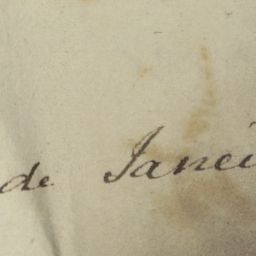 de Janei